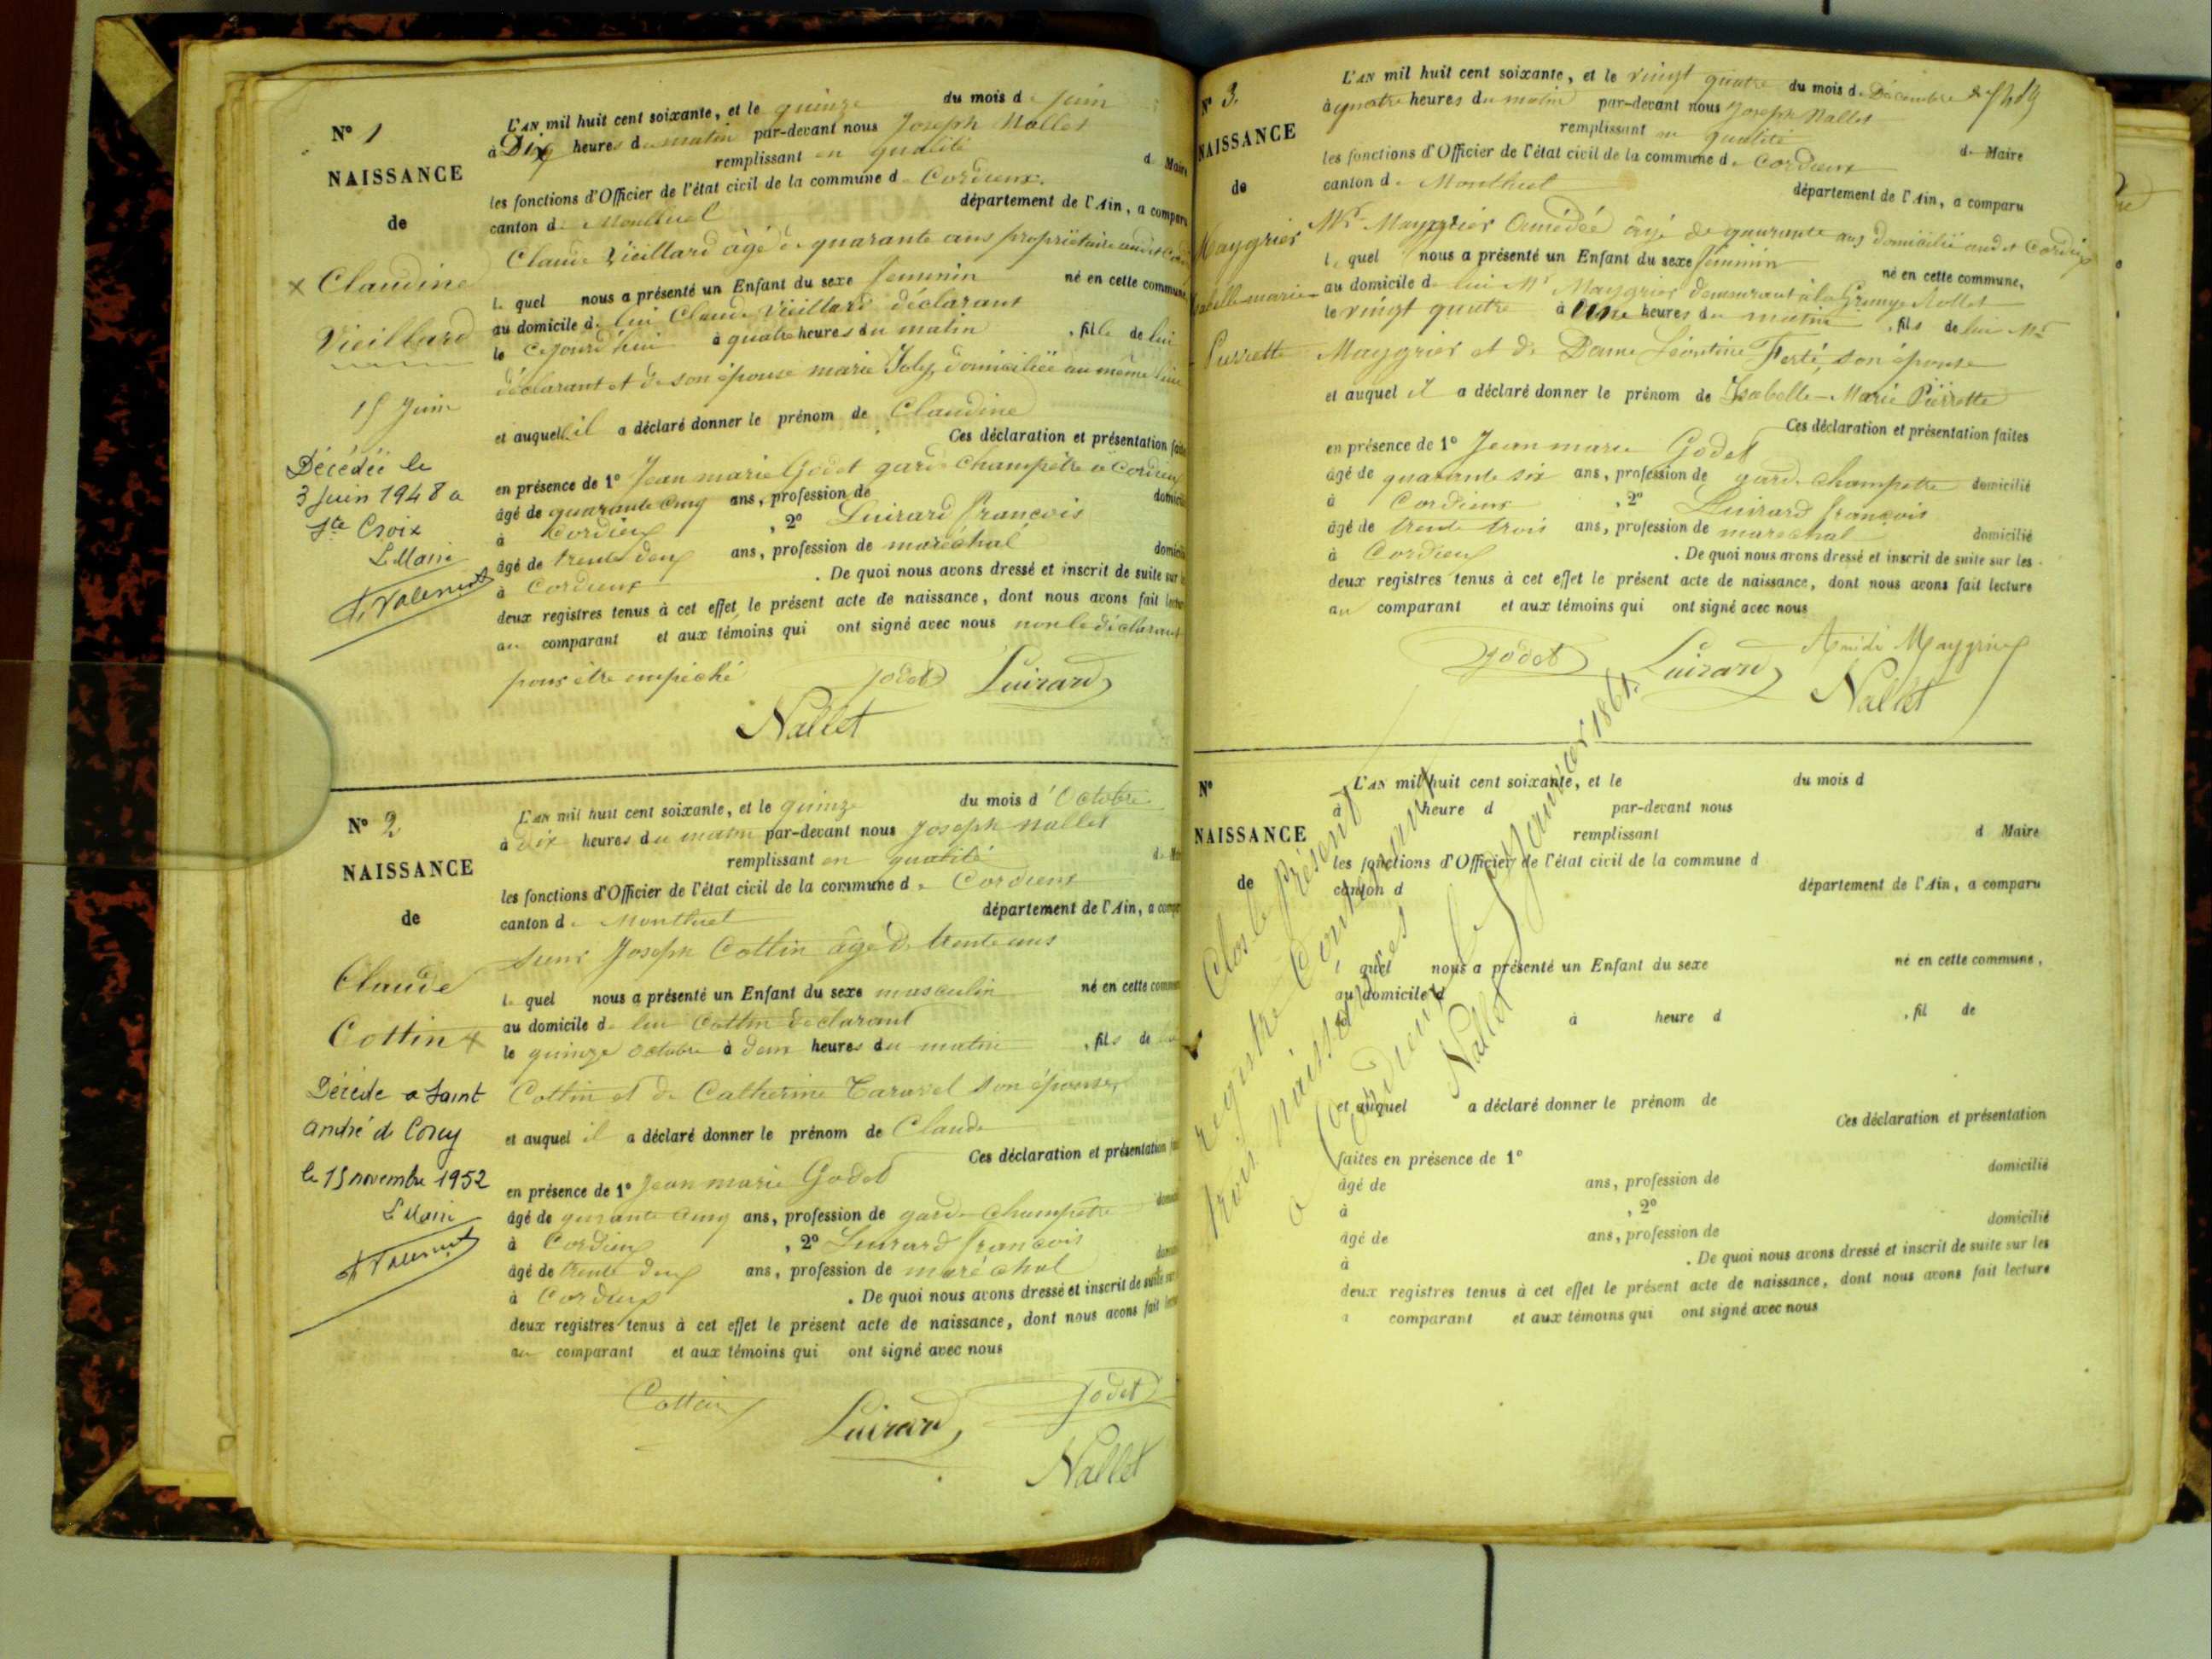 Nº 1
NAISSANCE
de
x Claudine
Vieillard
15 Juin
Décédée le
3 Juin 1948 a
Ste Croix
L Maire
L'AN mil huit cent soixante, et le quinze du mois de Juin
à Dix heures du matin par-devant nous Joseph Nallet
remplissant en qualité de Maire
les fonctions d'Officier de l'état civil de la commune de Cordieux
canton de Montluel département de l'Ain, a comparu
Claude Vieillard âgé de quarante ans propriétaire audit
le quel nous a présenté un Enfant du sexe feminin né en cette commune,
au domicile de lui Claude Vieillard déclarant
le cejourd'hui à quatre heures du matin , fille de lui
déclarant et de son épouse marie Joly, domiciliée au même lieu
et auquel il a déclaré donner le prénom de Claudine
Ces déclaration et présentation
en présence de 1º Jean marie Godet garde champêtre à Cordieux
âgé de quarante cinq ans, profession de
à Cordieux , 2º Luirard françois
âgé de trente deux ans, profession de maréchal
à Cordieux . De quoi nous avons dressé et inscrit de suite sur
deux registres tenus à cet effet le présent acte de naissance, dont nous avons fait
au comparant et aux témoins qui ont signé avec nous non le déclarant
pour être empêché Godet Luirard
Nallet
Nº 2
NAISSANCE
de
Claude
Cottin x
Décédé a Saint
André de Corcy
le 15 novembre 1952
L Maire
L'AN mil huit cent soixante, et le quinze du mois d'Octobre
à dix heures du matin par-devant nous Joseph Nallet
remplissant en qualité
les fonctions d'Officier de l'état civil de la commune de Cordieux
canton de Montluel département de l'Ain, a
sieur Joseph Cottin âgé de trente ans
le quel nous a présenté un Enfant du sexe masculin né en cette
au domicile de lui Cottin déclarant
le quinze octobre à deux heures du matin , fils de
Cottin et de Catherine son épouse,
et auquel il a déclaré donner le prénom de Claude
Ces déclaration et présentation
en présence de 1º Jean marie Godet
âgé de quarante cinq ans, profession de garde champêtre
à Cordieux , 2º Luirard françois
âgé de trente deux ans, profession de maréchal
à Cordieux . De quoi nous avons dressé et inscrit de suite
deux registres tenus à cet effet le présent acte de naissance, dont nous avons fait
au comparant et aux témoins qui ont signé avec nous
Cottin Luirard Godet
Nallet
Nº 3.
NAISSANCE
de
Maygrier
marie
L'AN mil huit cent soixante, et le vingt quatre du mois de Décembre
à quatre heures du matin par-devant nous Joseph Nallet
remplissant en qualité de Maire
les fonctions d'Officier de l'état civil de la commune de Cordieux
canton de Montluel département de l'Ain, a comparu
Mr Maygrier Amédée âgé de quarante ans domicilié audit Cordieux
le quel nous a présenté un Enfant du sexe féminin né en cette commune,
au domicile de lui Mr Maygrier demeurant à la Grange
le vingt quatre à Une heures du matin , fils de lui Mr
Maygrier et de Dame Léontine Ferté, son épouse
et auquel il a déclaré donner le prénom de Isabelle-Marie Pierrette
Ces déclaration et présentation faites
en présence de 1º Jean marie Godet
âgé de quarante six ans, profession de garde champetre domicilié
à Cordieux , 2º Luirard françois
âgé de trente trois ans, profession de maréchal domicilié
à Cordieux . De quoi nous avons dressé et inscrit de suite sur les
deux registres tenus à cet effet le présent acte de naissance, dont nous avons fait lecture
au comparant et aux témoins qui ont signé avec nous
Godet Luirard Amédé Maygrier
Nallet
Nº
NAISSANCE
de
L'AN mil huit cent soixante, et le du mois d
à heure d par-devant nous
remplissant d Maire
les fonctions d'Officier de l'état civil de la commune d
canton d département de l'Ain, a comparu
l quel nous a présenté un Enfant du sexe né en cette commune,
au domicile d
le à heure d , fil de
et auquel a déclaré donner le prénom de
Ces déclaration et présentation
faites en présence de 1º domicilié
âgé de ans, profession de
à , 2º
âgé de ans, profession de domicilié
à . De quoi nous avons dressé et inscrit de suite sur les
deux registres tenus à cet effet le présent acte de naissance, dont nous avons fait lecture
a comparant et aux témoins qui ont signé avec nous
Clos le présent
registre contenant
trois naissances
à Cordieux le 1er Janvier 1861.
Nallet